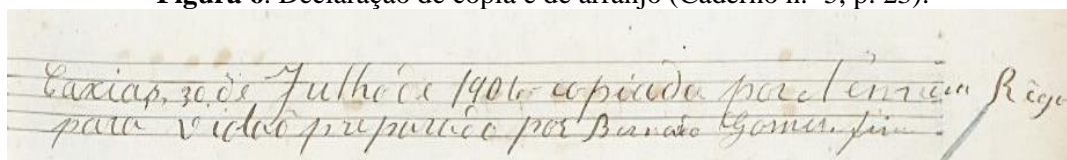 Figura 6. Declaração de cópia e de arranjo (Caderno n.º 5, p. 25).
Caxias, 30, de Julho de 1906 copiada por Rêgo
para vidaô preparado por Gomes. fim